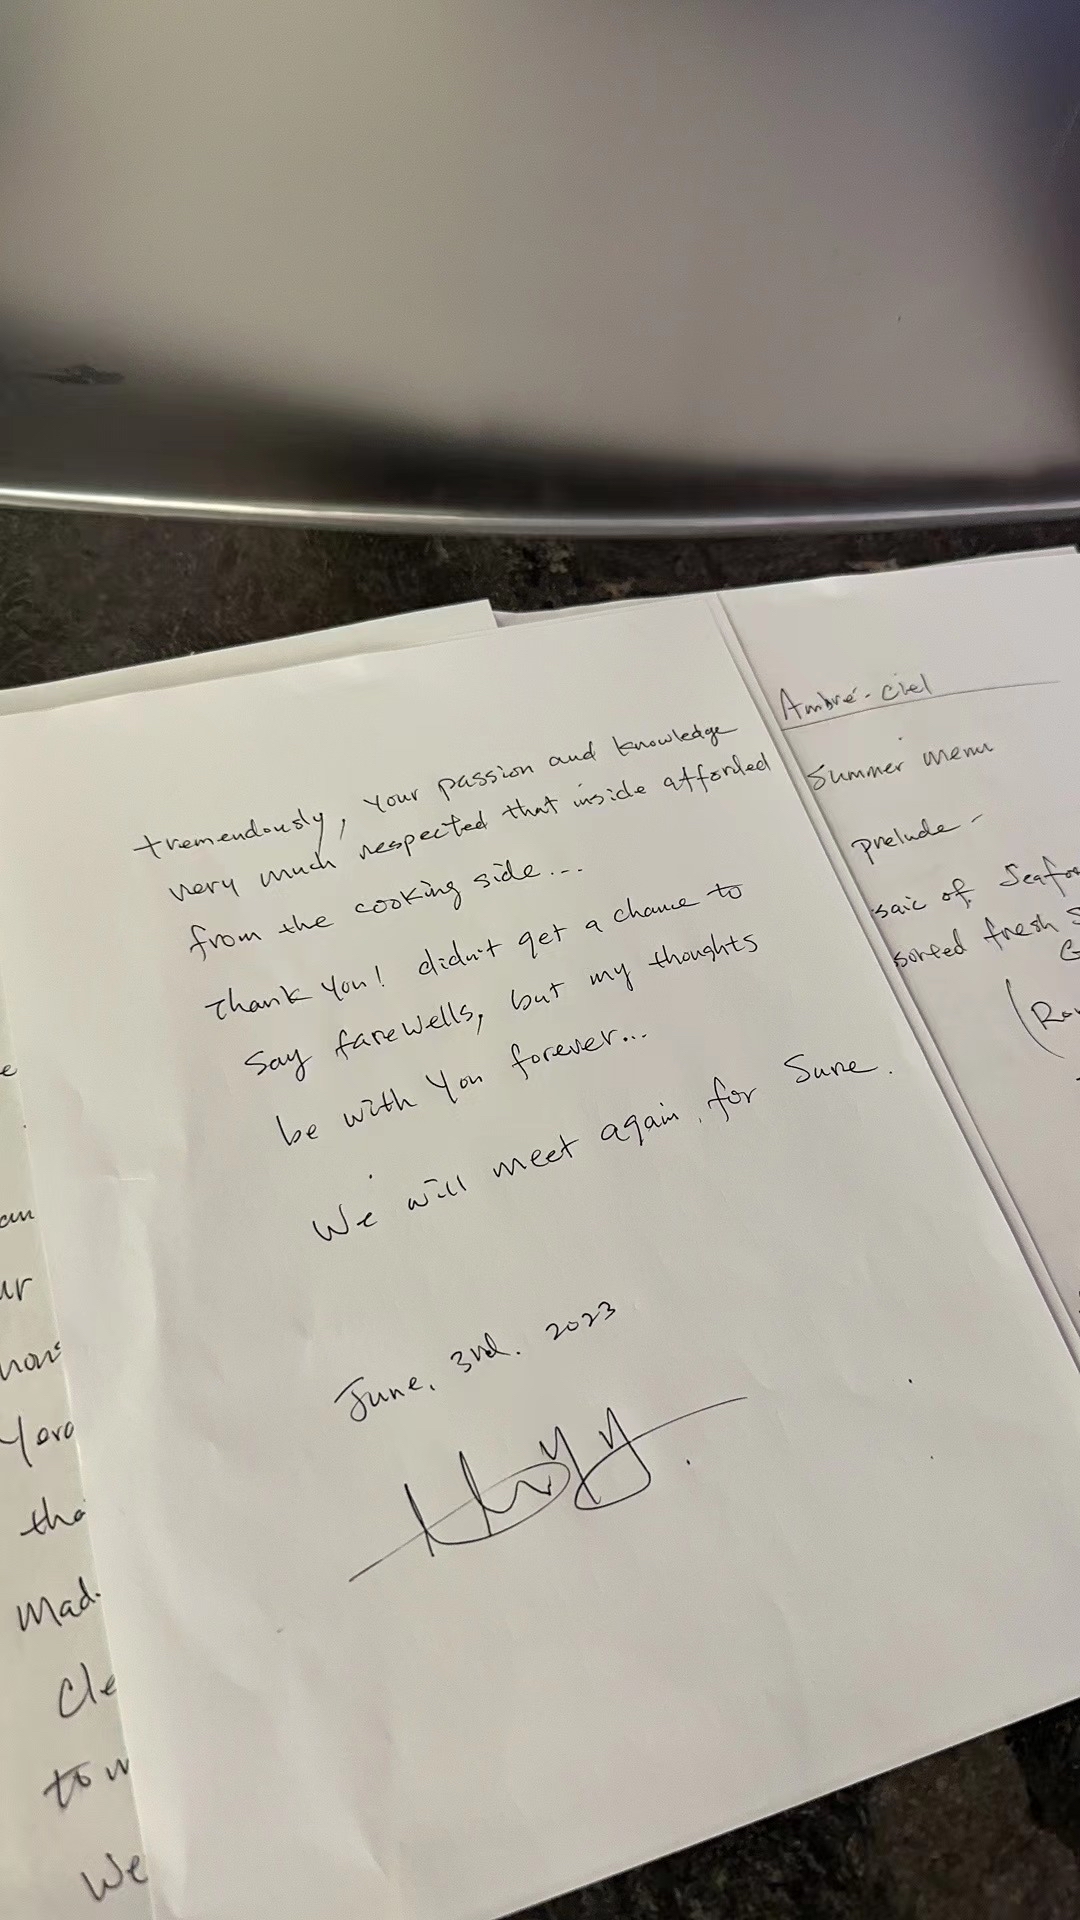 tremendously, Your passion and knowledge
very much respected that inside afforded
from the cooking side...
Thank You! didn't get a chance to
say farewells, but my thoughts
be with You forever...
We will meet again, for Sure.
June, 3rd. 2023
Ambré-ciel
Summer menu
prelude-
saic of Seafo
sorted fresh S
G
(Ro
e
an
ur
Yero
tha
Mad
Cle
to w
We